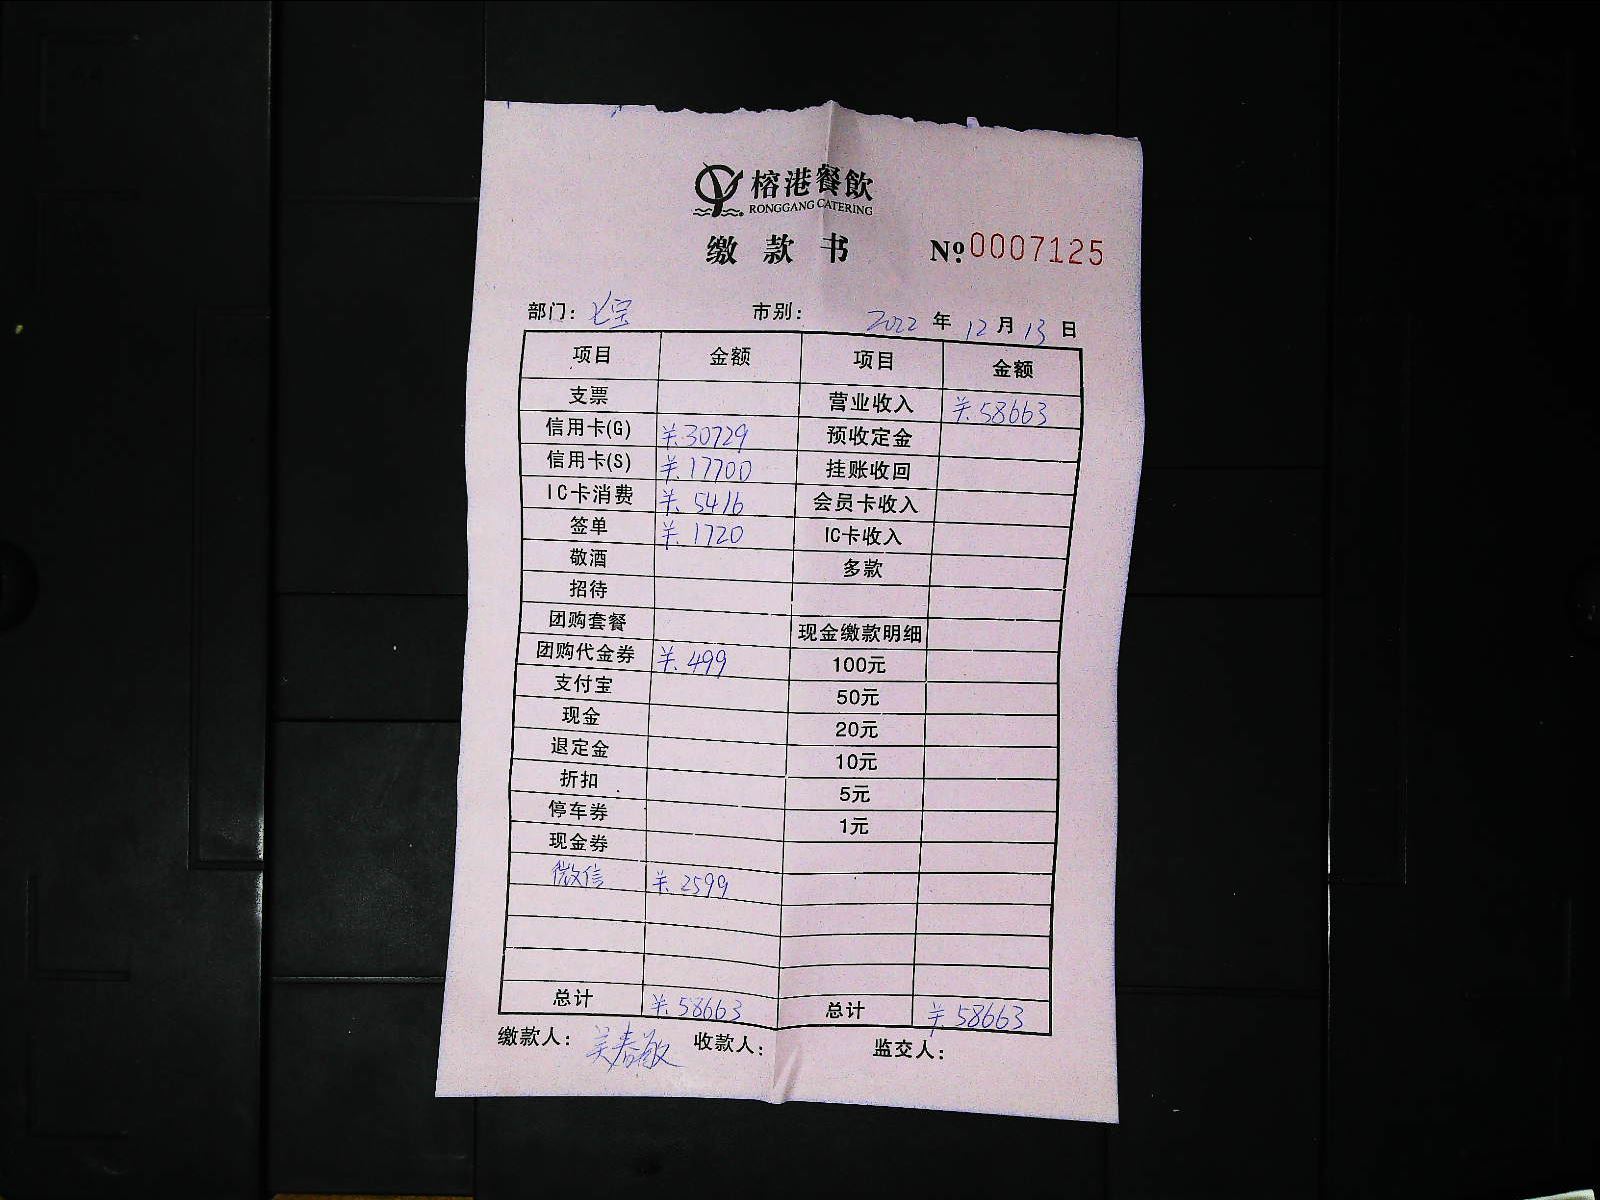 榕港餐飲
RONGGANG CATERING
缴款书 №0007125
部门：七宝 市别： 2022 年 12 月 13 日
项目 金额 项目 金额
支票 营业收入 ¥.58663
信用卡(G) ¥.30729 预收定金
信用卡(S) ¥.17700 挂账收回
IC卡消费 ¥.5416 会员卡收入
签单 ¥.1720 IC卡收入
敬酒 多款
招待
团购套餐 现金缴款明细
团购代金券 ¥.499 100元
支付宝 50元
现金 20元
退定金 10元
折扣 5元
停车券 1元
现金券
微信 ¥.2599
总计 ¥.58663 总计 ¥.58663
缴款人：吴春敏 收款人： 监交人：